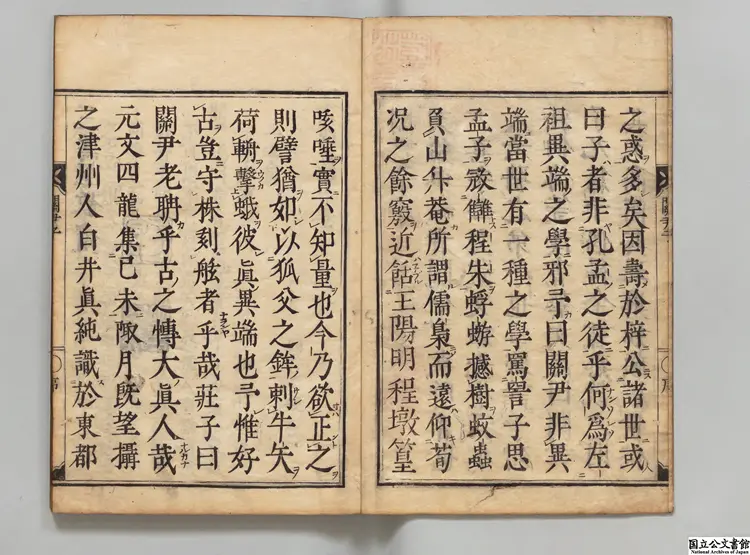 之惑多矣因壽於梓公諸世或
曰子者非孔孟之徒乎何爲左
祖異端之學邪予曰關尹非異
端當世有一種之學罵詈子思
孟子寇讎程朱蜉蝣撼樹蚊蟲
負山升菴所謂儒梟而遠仰荀
况之餘竅近餂王陽明程墩篁
咳唾實不知量也今乃欲正之
則譬猶如以狐父之鉾刺牛矢
荷斬擊蛾彼眞異端也予惟好
古豈守株刻舷者乎哉莊子曰
關尹老聃乎古之博大眞人哉
元文四龍集己未陬月旣望攝
之津州人白井眞純識於東都
關尹子
序
國立公文書館
National Archives of Japan